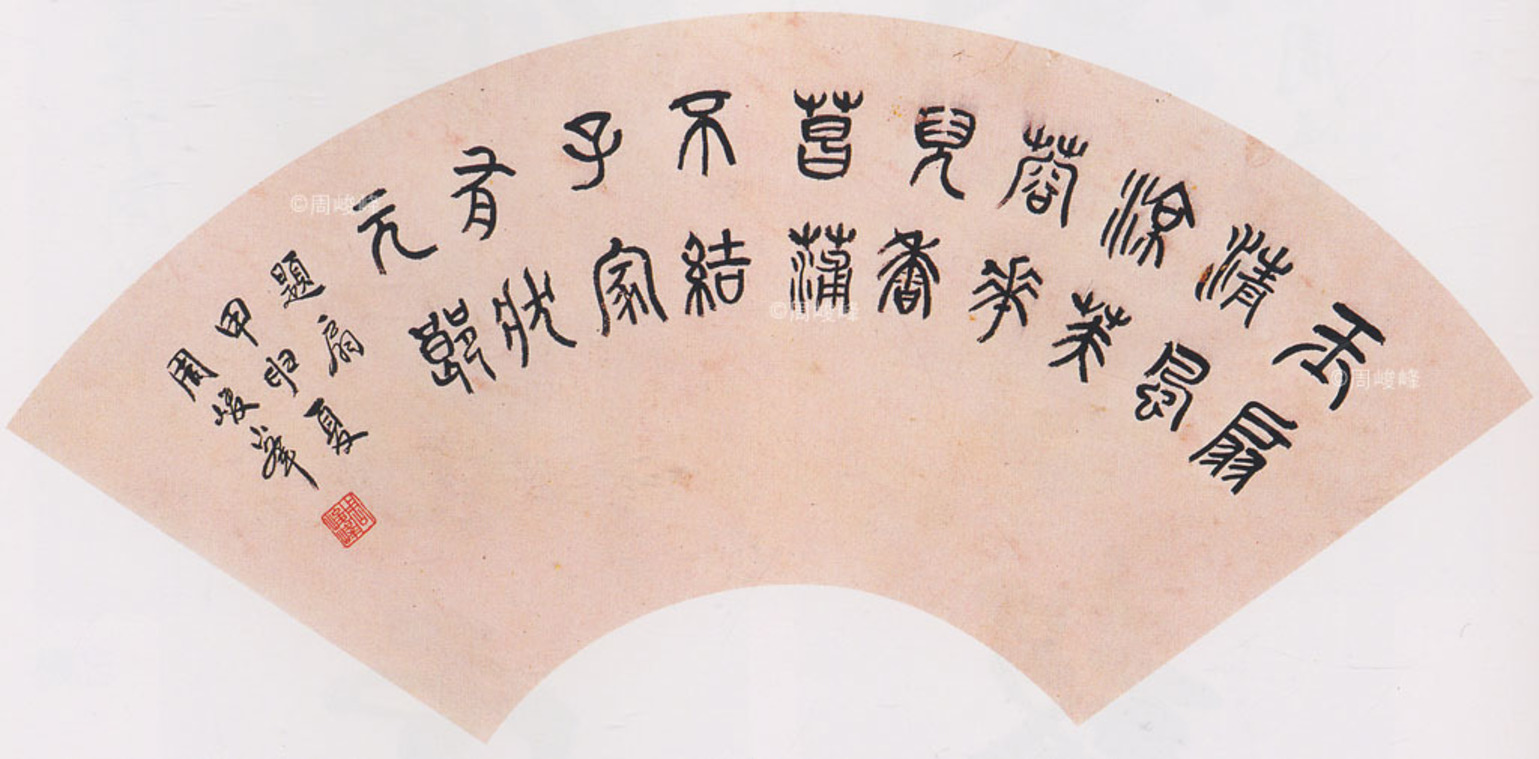 玉扇
清風
涼芙
蓉花
兒香
菖蒲
不結
子家
有狀
元郎
題扇
甲申夏
周峻峰
©周峻峰
©周峻峰
©周峻峰